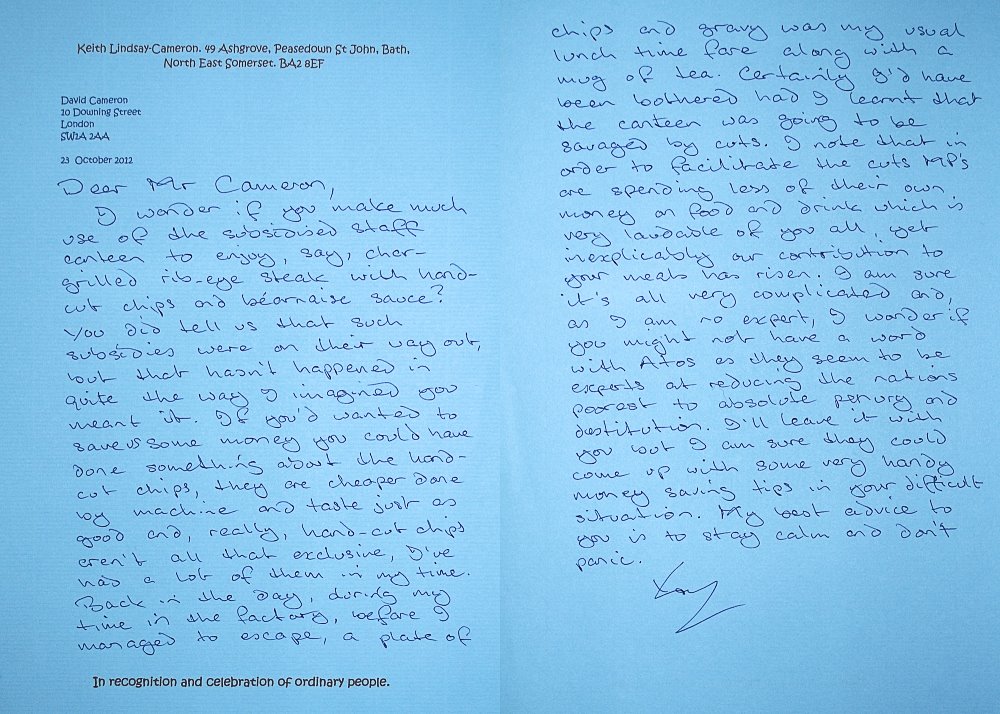 Keith Lindsay-Cameron. 49 Ashgrove, Peasedown St John, Bath,
North East Somerset. BA2 8EF
David Cameron
10 Downing Street
London
SW1A 2AA
23 October 2012
Dear Mr Cameron,
I wonder if you make much
use of the subsidised staff
canteen to enjoy, say, char-
grilled rib-eye steak with hand-
cut chips and béarnaise sauce?
You did tell us that such
subsidies were on their way out,
but that hasn't happened in
quite the way I imagined you
meant it. If you'd wanted to
save us some money you could have
done something about the hand-
cut chips, they are cheaper done
by machine and taste just as
good and, really, hand-cut chips
aren't all that exclusive, I've
had a lot of them in my time.
Back in the day, during my
time in the factory, before I
managed to escape, a plate of
In recognition and celebration of ordinary people.
chips and gravy was my usual
lunch time fare along with a
mug of tea. Certainly I'd have
been bothered had I learnt that
the canteen was going to be
savaged by cuts. I note that in
order to facilitate the cuts MP's
are spending less of their own
money on food and drink which is
very laudable of you all, yet
inexplicably our contribution to
your meals has risen. I am sure
it's all very complicated and,
as I am no expert, I wonder if
you might not have a word
with Atos as they seem to be
experts at reducing the nations
poorest to absolute penury and
destitution. I'll leave it with
you but I am sure they could
come up with some very handy
money saving tips in your difficult
situation. My best advice to
you is to stay calm and don't
panic.